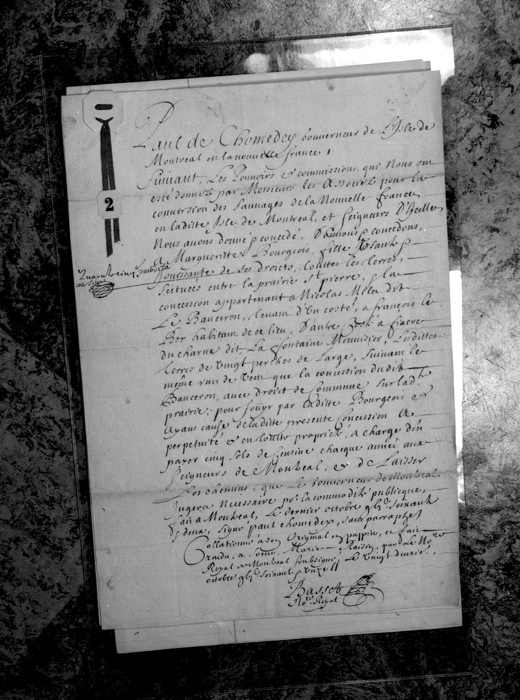 2
Paul de Chomedey Gouverneur de L'Isle de
Montreal en la nouvelle france
Suivant, Les Pouvoirs & commission, que Nous ont
esté donnez par Messieurs les Associez pour la
conversion des Sauvages de la Nouvelle France
en ladite Isle de Montreal, et seigneurs D'Icelle,
Nous avons donné & concedé, Donnons & concedons,
A Marguerite Bourgeois, fille usante &
Jouissante de ses droicts, toutes les terres,
scituées entre la prairie St pierre, & la
concession appartenant a Nicolas Millet dit
Le Bauceron, tenant d'Un costé, a françois le
Ber habitant de ce lieu, D'autre costé a fiacre
du charne dit La fontaine Menuisier, Lesdittes
terres de Vingt perches de Large, suivant le
même run de Vent que la concession dudit
Bauceron, avec droict de Commune sur lad.
prairie, pour Jouyr par laditte Bourgeois &
Ayans cause de laditte presente Concession A
perpetuité & en toutte proprieté, a charge d'en
payer cinq sols de censive chacque année aux
Seigneurs de Montreal, & de Laisser
Les chemins, que Le Gouverneur de Montreal
Jugera Nécessaire pr la commodité publicque,
fait a Montreal, Le dernier octobre gbj soixante
& deux, signé paul chomedey, sans paraphe
Collationné a son Original en pappier, ce fait
rendu, a soeur Marie Raisin, par Le No.re
Royal a Montreal soubsigné, le vingt deuxie.
octobre gbj soixante & unze
Basset
No.re Royal